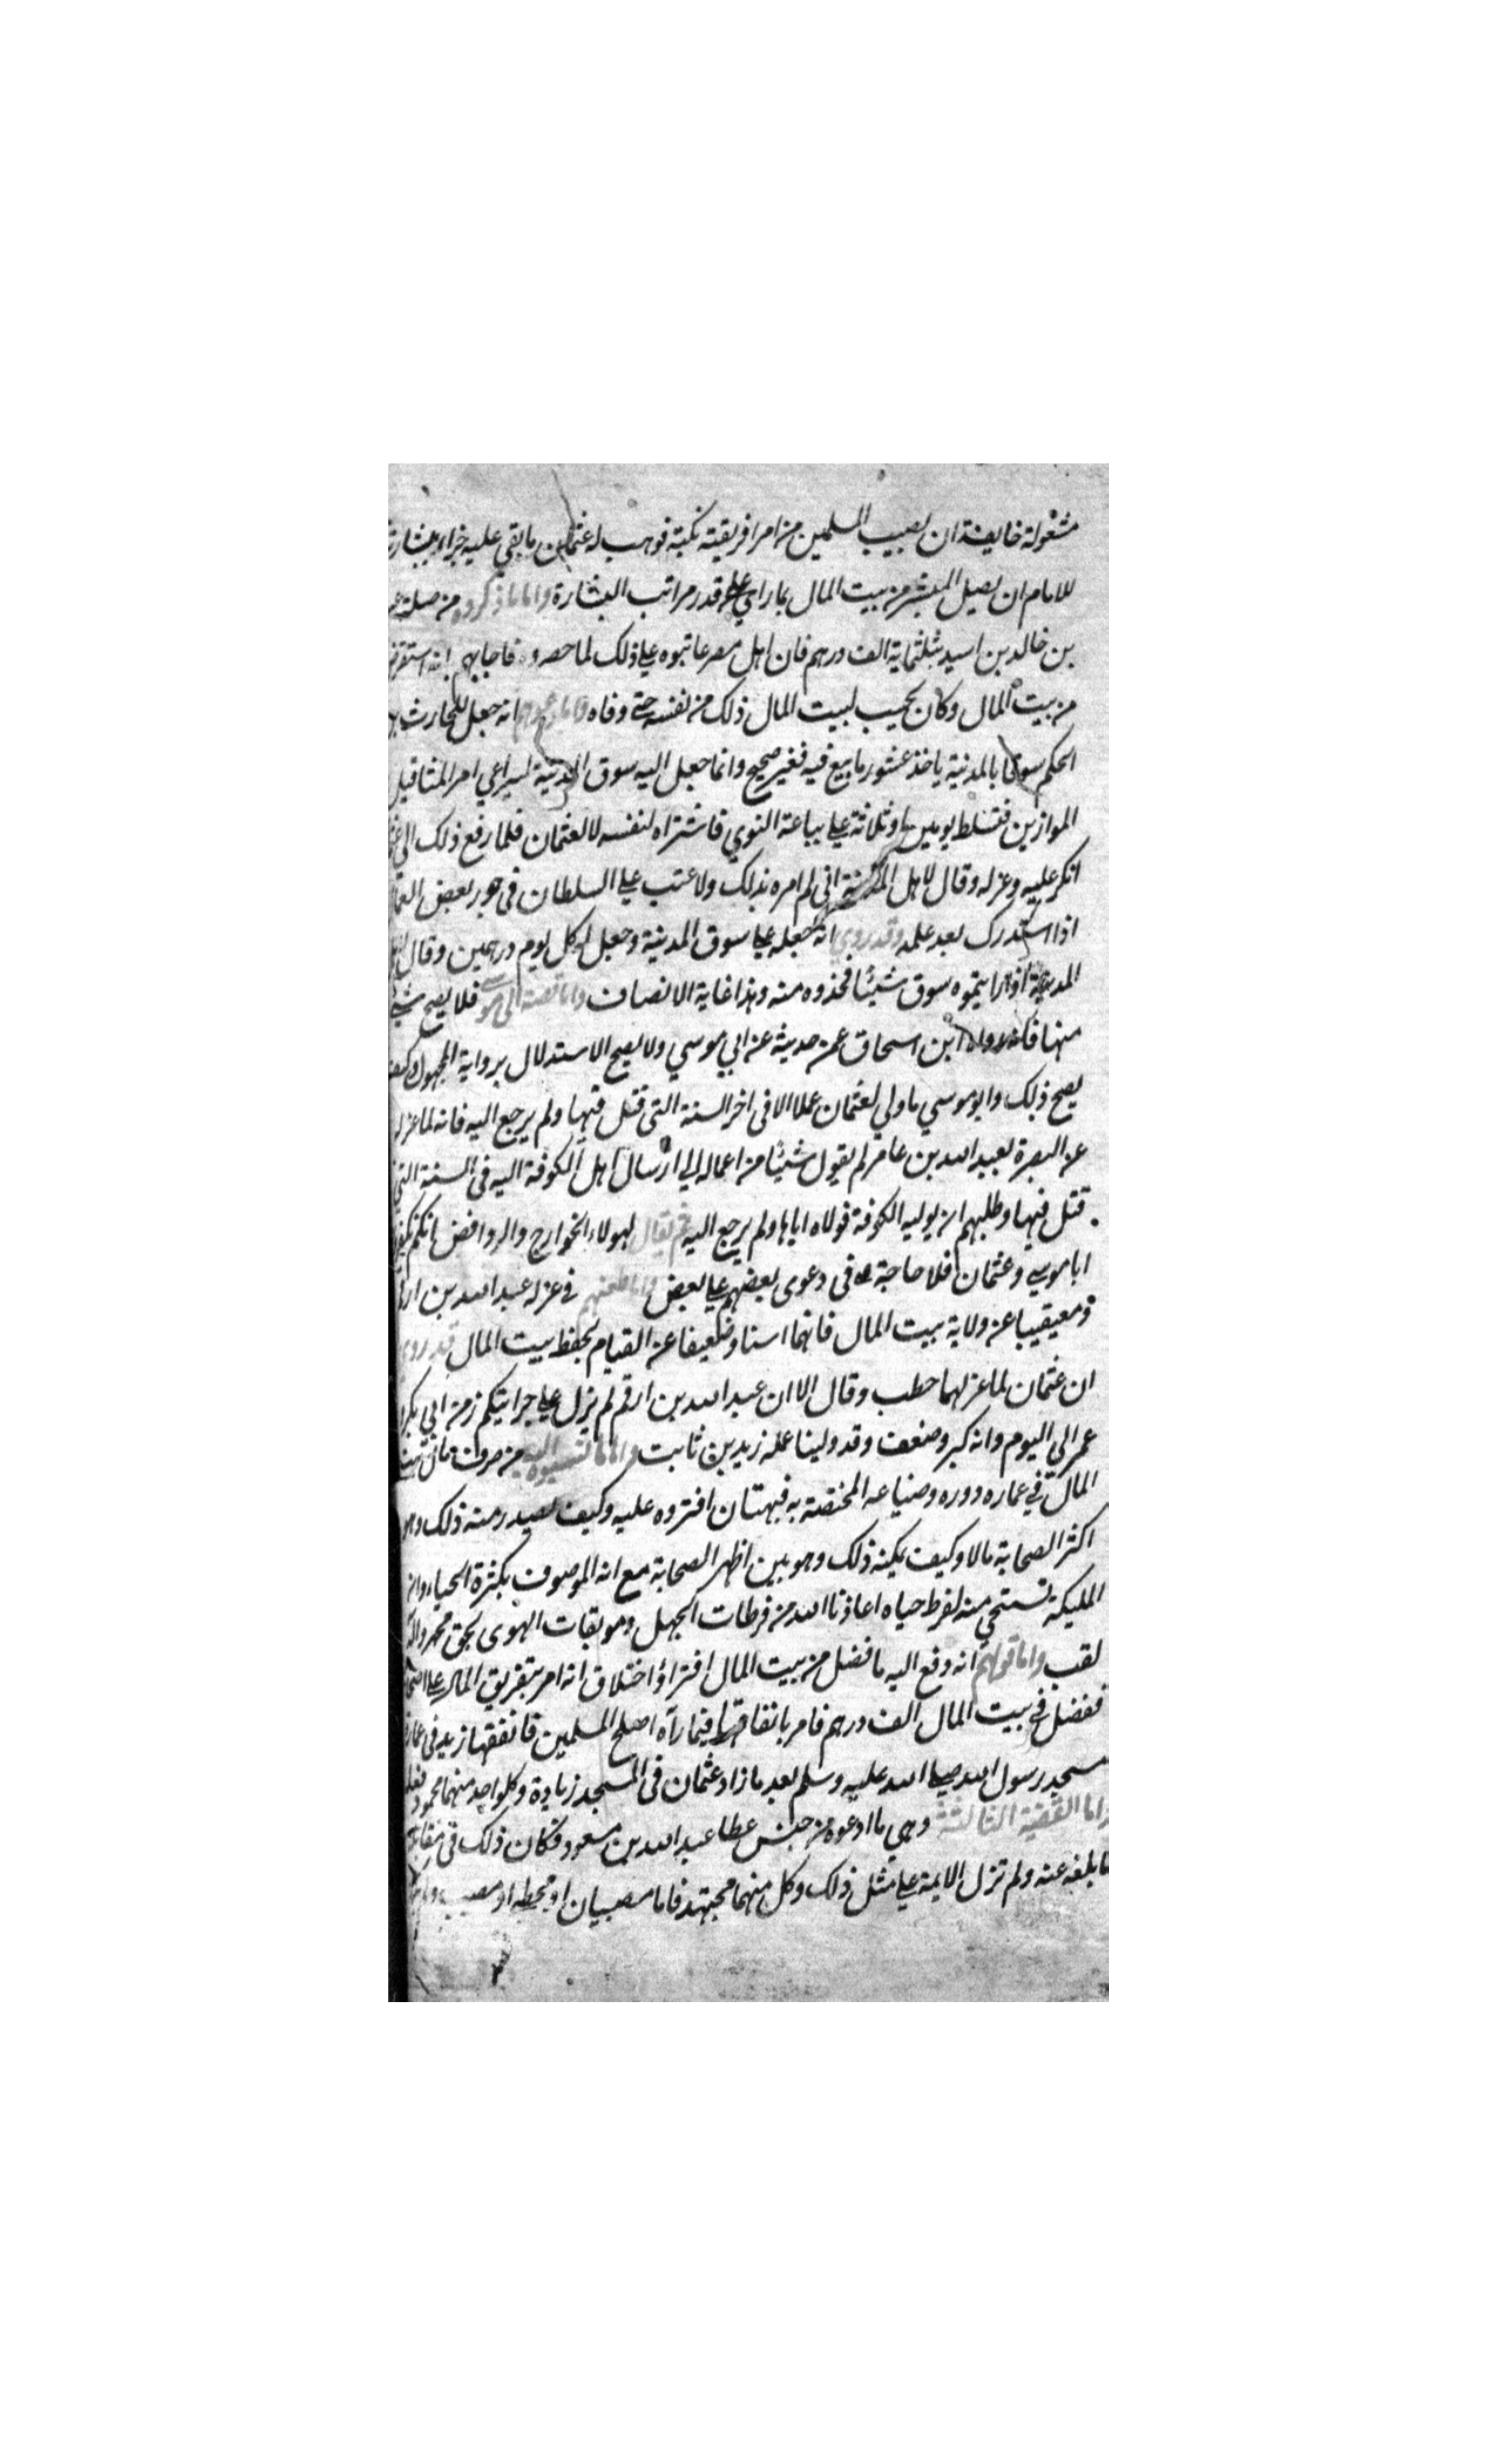 مشغولة خايفة ان يصيب المسلمين من امر افريقية نكبة فوهب له عثمان ما بقي عليه جزاء بشارته
للامام ان يصل المبشر من بيت المال بما راى على قدر مراتب البشارة واما ما ذكروه من صلة
بن خالد بن اسيد بثلثماية الف درهم فان اهل مصر عاتبوه على ذلك لما حصروه فاجابهم انه استقرض
من بيت المال وكان يحسب لبيت المال ذلك من نفسه حتى وفاه واما دعواهم انه جعل للحارث بن
الحكم سوقا بالمدينة ياخذ عشور ما بيع فيه فغير صحيح وانما جعل اليه سوق المدينة ليراعي امر المثاقيل
الموازين فتسلط يومين او ثلاثة على بياعة النوي فاشتراه لنفسه لا لعثمان فلما رفع ذلك الى
انكر عليه وعزله وقال لاهل المدينة اني لم امره بذلك ولا عتب على السلطان في جور بعض العمال
اذا استدرك بعد علمه وقد روي انه جعله على سوق المدينة وجعل له كل يوم درهمين وقال لاهل
المدينة اذا رايتموه سوق شيئا فخذوه منه وهذا غاية الانصاف واما قصة ابى موسى فلا يصح شيء
منها فانه رواه ابن اسحاق عن من حدثه عن ابي موسي ولا يصح الاستدلال برواية المجهول وكيف
يصح ذلك وابو موسي ما ولي لعثمان عملا الا في اخر السنة التي قتل فيها ولم يرجع اليه فانه لما عزله
عن البصرة بعبد الله بن عامر لم يقول شيئا من اعماله الى ارسال اهل الكوفة اليه في السنة التي
قتل فيها وطلبهم ان يوليه الكوفة فولاه اياها ولم يرجع اليه ثم يقال لهولاء الخوارج والروافض انكم تكفرون
ابا موسي وعثمان فلا حاجة في دعوى بعضهم على بعض واما طعنهم في عزله عبد الله بن ارقم
ومعيقيبا عن ولاية بيت المال فانهما اسنا وضعيفا عن القيام بحفظ بيت المال قد روي
ان عثمان لما عزلهما خطب وقال الا ان عبد الله بن ارقم لم يزل على جرايتكم زمن ابي بكر
عمر الى اليوم وانه كبر وضعف وقد ولينا عمله زيد بن ثابت واما ما نسبوه اليه من صرف مال بيت
المال في عمارة دوره وضياعه المختصة به فبهتان افتروه عليه وكيف يصدر منه ذلك وهو
اكثر الصحابة مالا وكيف يمكنه ذلك وهو بين اظهر الصحابة مع انه الموصوف بكثرة الحياء وان
المليكة تستحي منه لفرط حياه اعاذنا الله من فرطات الجهل وموبقات الهوى بحق محمد واله
لقب واما قولهم انه دفع اليه ما فضل من بيت المال افتراؤ اختلاق انه امر بتفريق المال على اصحابه
ففضل في بيت المال الف درهم فامر بانفاقها فيما رآه اصلح المسلمين فانفقها زيد في عمارة
مسجد رسول الله صلى الله عليه وسلم بعد ما زاد عثمان في المسجد زيادة وكل واحد منهما محمود فعله
واما القضية الثالثة وهي ما ادعوه من حبس عطا عبد الله بن مسعود فكان ذلك في مقابلة
ما بلغه عنه ولم تزل الايمة على مثل ذلك وكل منهما مجتهد فاما مصيبان او مخطي او مصيب